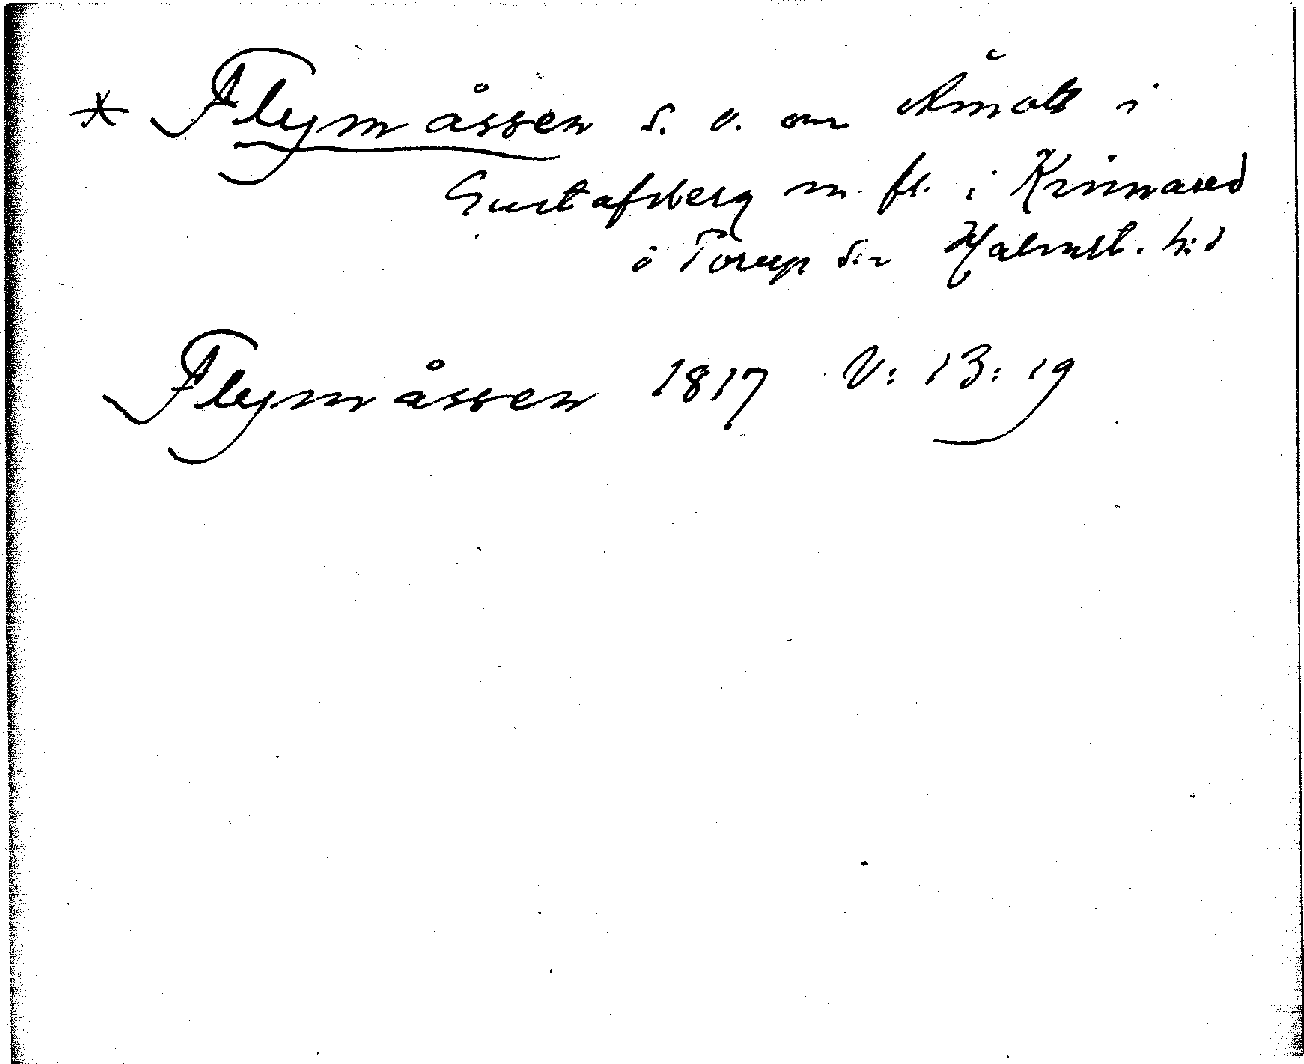 * Flymåssen s. o. om Åmot i
Gustafsberg m. fl. i Krinnared
o Torup s:n Halmst. h:d
Flymåssen 1817 V: 13: 19